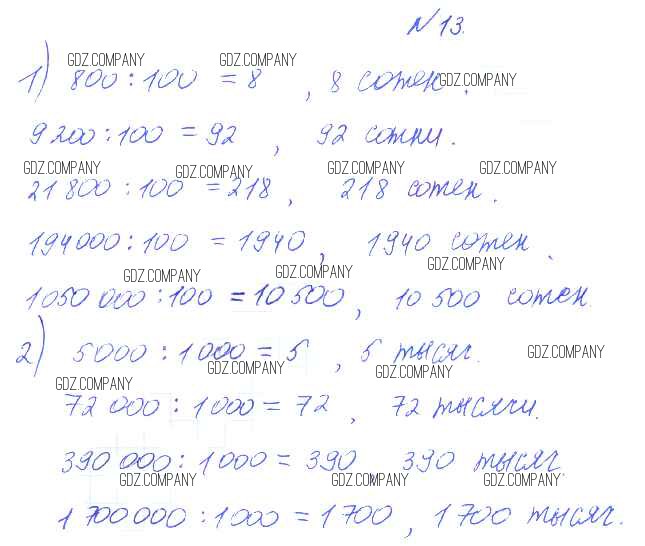 № 13.
1) 800 : 100 = 8, 8 сотен.
9 200 : 100 = 92, 92 сотни.
21 800 : 100 = 218, 218 сотен.
194 000 : 100 = 1940, 1940 сотен.
1050 000 : 100 = 10 500, 10 500 сотен.
2) 5000 : 1 000 = 5, 5 тысяч.
72 000 : 1 000 = 72, 72 тысячи.
390 000 : 1 000 = 390, 390 тысяч.
1 700 000 : 1 000 = 1 700, 1 700 тысяч.
GDZ.COMPANY GDZ.COMPANY
GDZ.COMPANY
GDZ.COMPANY GDZ.COMPANY GDZ.COMPANY GDZ.COMPANY
GDZ.COMPANY GDZ.COMPANY GDZ.COMPANY
GDZ.COMPANY
GDZ.COMPANY GDZ.COMPANY GDZ.COMPANY
GDZ.COMPANY GDZ.COMPANY GDZ.COMPANY